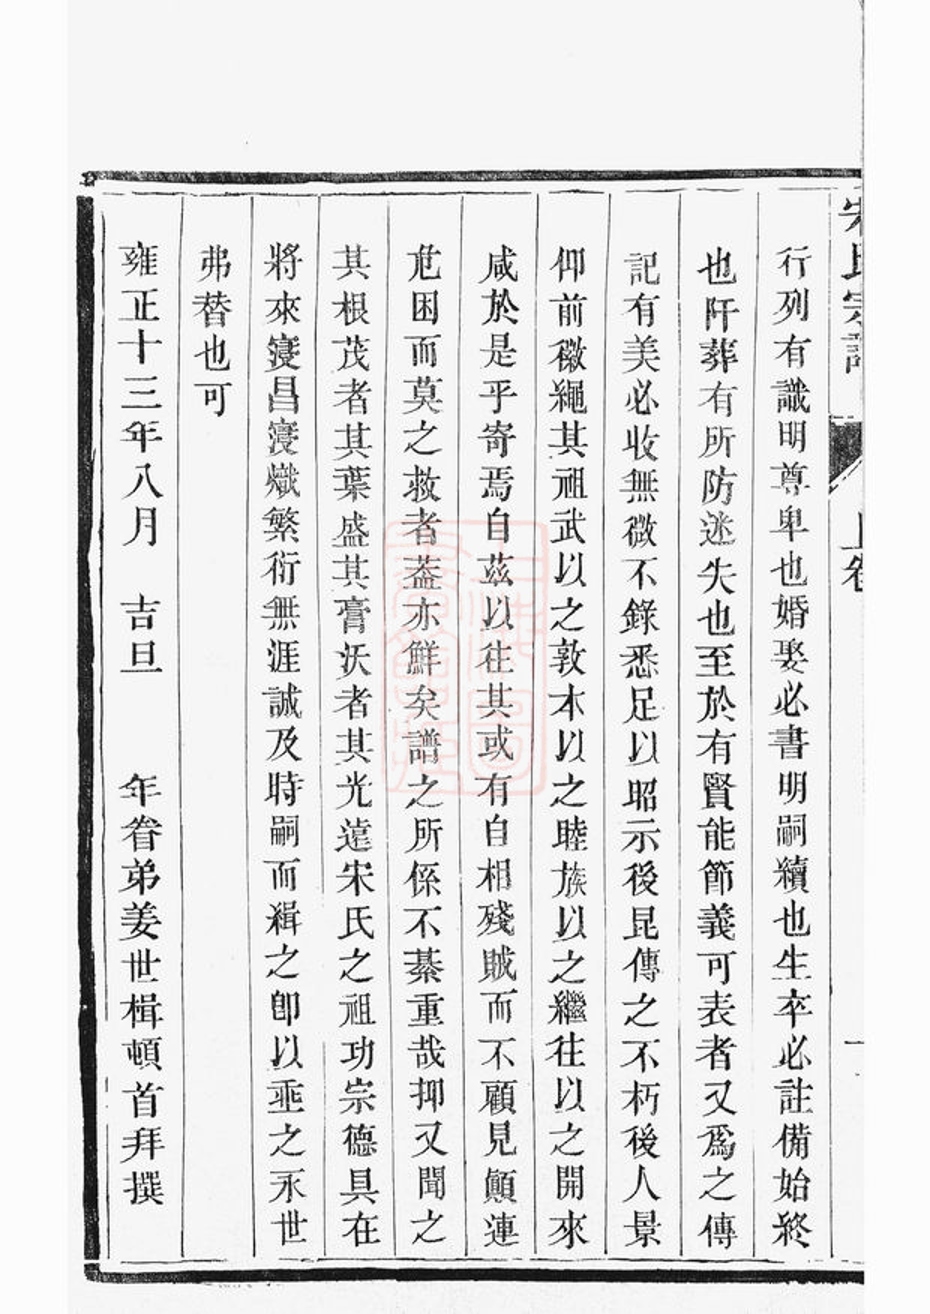 宋氏宗譜
上卷
一
行列有識明尊卑也婚娶必書明嗣續也生卒必註備始終
也阡葬有所防迷失也至於有賢能節義可表者又爲之傳
記有美必收無微不錄悉足以昭示後昆傳之不朽後人景
仰前徽繩其祖武以之敦本以之睦族以之繼往以之開來
咸於是乎寄焉自茲以往其或有自相殘賊而不顧見顚連
危困而莫之救者葢亦鮮矣譜之所係不綦重哉抑又聞之
其根茂者其葉盛其膏沃者其光遠宋氏之祖功宗德具在
將來寖昌寖熾繁衍無涯誠及時嗣而緝之卽以垂之永世
弗替也可
雍正十三年八月 吉旦 年眷弟姜世楫頓首拜撰